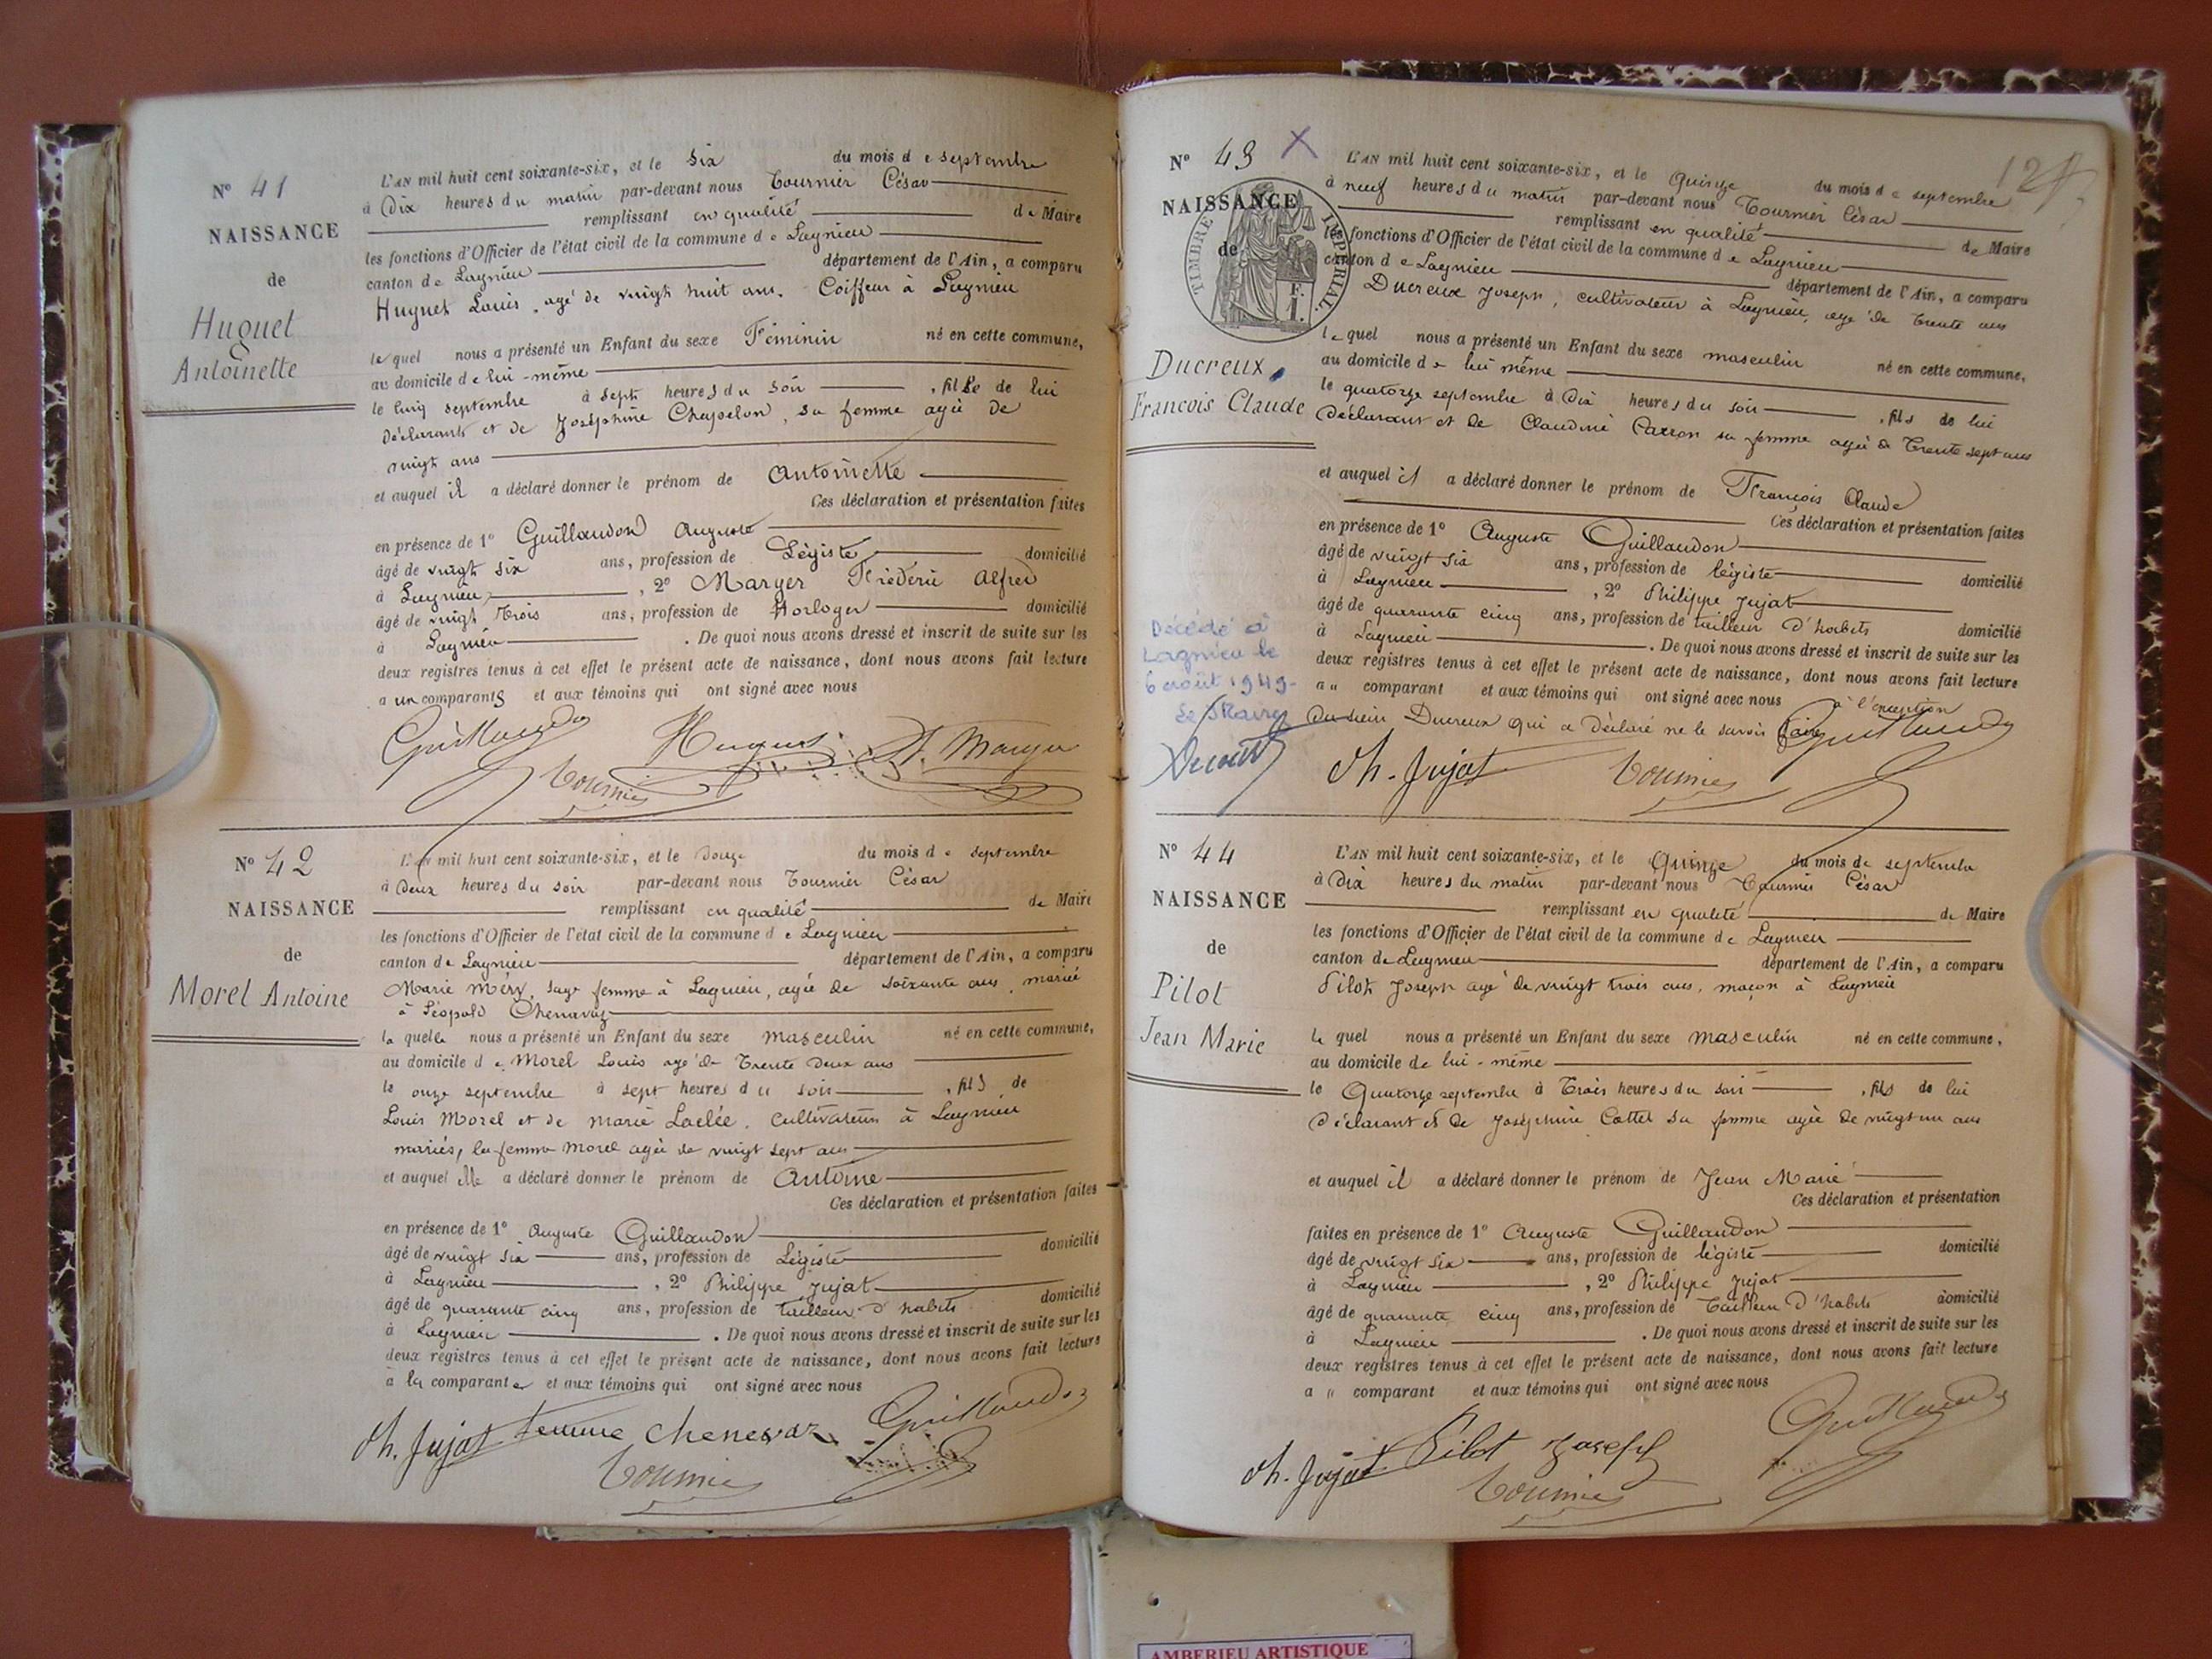 N° 41
NAISSANCE
de
Huguet
Antoinette
L'AN mil huit cent soixante-six, et le six du mois de septembre
à Dix heures du matin par-devant nous Tournier César
remplissant en qualité de Maire
les fonctions d'Officier de l'état civil de la commune de Lagnieu
canton de Lagnieu département de l'Ain, a comparu
Huguet Louis, agé de vingt huit ans. Coiffeur à Lagnieu
lequel nous a présenté un Enfant du sexe Féminin né en cette commune,
au domicile de lui-même
le cinq septembre à sept heures du soir, fille de lui
déclarant et de Joséphine Chapelon, sa femme agée de
vingt ans
et auquel il a déclaré donner le prénom de Antoinette
Ces déclaration et présentation faites
en présence de 1° Guillaudon Auguste
âgé de vingt six ans, profession de Légiste domicilié
à Lagnieu, 2° Marger Frédéric Alfred
âgé de vingt trois ans, profession de Horloger domicilié
à Lagnieu. De quoi nous avons dressé et inscrit de suite sur les
deux registres tenus à cet effet le présent acte de naissance, dont nous avons fait lecture
a un comparants et aux témoins qui ont signé avec nous
Guillaudon Huguet F. Marger
Tournier
N° 42
NAISSANCE
de
Morel Antoine
L'AN mil huit cent soixante-six, et le douze du mois de septembre
à deux heures du soir par-devant nous Tournier César
remplissant en qualité de Maire
les fonctions d'Officier de l'état civil de la commune de Lagnieu
canton de Lagnieu département de l'Ain, a comparu
Marie Méry, sage femme à Lagnieu, agée de soixante ans, mariée
à Léopold Chenavaz
laquelle nous a présenté un Enfant du sexe masculin né en cette commune,
au domicile de Morel Louis agé de trente deux ans
le onze septembre à sept heures du soir, fils de
Louis Morel et de Marie Laelée. cultivateurs à Lagnieu
mariés, la femme Morel agée de vingt sept ans
et auquel elle a déclaré donner le prénom de Antoine
Ces déclaration et présentation faites
en présence de 1° Auguste Guillaudon
âgé de vingt six ans, profession de Légiste domicilié
à Lagnieu, 2° Philippe Jujat
âgé de quarante cinq ans, profession de tailleur d'habits domicilié
à Lagnieu. De quoi nous avons dressé et inscrit de suite sur les
deux registres tenus à cet effet le présent acte de naissance, dont nous avons fait lecture
à la comparante et aux témoins qui ont signé avec nous
Ph. Jujat femme Chenevaz Guillaudon
Tournier
N° 43 X
NAISSANCE
de
TIMBRE IMPÉRIAL
F.
1.
Ducreux,
Francois Claude
Décédé à
Lagnieu le
6 août 1949-
Le Maire
L'AN mil huit cent soixante-six, et le Quinze du mois de septembre
à neuf heures du matin par-devant nous Tournier César
remplissant en qualité de Maire
les fonctions d'Officier de l'état civil de la commune de Lagnieu
canton de Lagnieu département de l'Ain, a comparu
Ducreux Joseph, cultivateur à Lagnieu, agé de trente ans
lequel nous a présenté un Enfant du sexe masculin né en cette commune,
au domicile de lui même
le quatorze septembre à Dix heures du soir, fils de lui
déclarant et de Claudine Carron sa femme agée de trente sept ans
et auquel il a déclaré donner le prénom de François Claude
Ces déclaration et présentation faites
en présence de 1° Auguste Guillaudon
âgé de vingt six ans, profession de légiste domicilié
à Lagnieu, 2° Philippe Jujat
âgé de quarante cinq ans, profession de tailleur d'habits domicilié
à Lagnieu. De quoi nous avons dressé et inscrit de suite sur les
deux registres tenus à cet effet le présent acte de naissance, dont nous avons fait lecture
a " comparant et aux témoins qui ont signé avec nous à l'exception
du sieur Ducreux qui a déclaré ne le savoir faire
Guillaudon
Ph. Jujat Tournier
N° 44
NAISSANCE
de
Pilot
Jean Marie
L'AN mil huit cent soixante-six, et le Quinze du mois de septembre
à Dix heures du matin par-devant nous Tournier César
remplissant en qualité de Maire
les fonctions d'Officier de l'état civil de la commune de Lagnieu
canton de Lagnieu département de l'Ain, a comparu
Pilot Joseph agé de vingt trois ans, maçon à Lagnieu
lequel nous a présenté un Enfant du sexe masculin né en cette commune,
au domicile de lui-même
le Quatorze septembre à Trois heures du soir, fils de lui
déclarant et de Joséphine Cottet sa femme agée de vingt un ans
et auquel il a déclaré donner le prénom de Jean Marie
Ces déclaration et présentation
faites en présence de 1° Auguste Guillaudon
âgé de vingt six ans, profession de légiste domicilié
à Lagnieu, 2° Philippe Jujat
âgé de quarante cinq ans, profession de Tailleur d'habits domicilié
à Lagnieu. De quoi nous avons dressé et inscrit de suite sur les
deux registres tenus à cet effet le présent acte de naissance, dont nous avons fait lecture
a " comparant et aux témoins qui ont signé avec nous
Guillaudon
Ph. Jujat Pilot Joseph
Tournier
AMBERIEU ARTISTIQUE